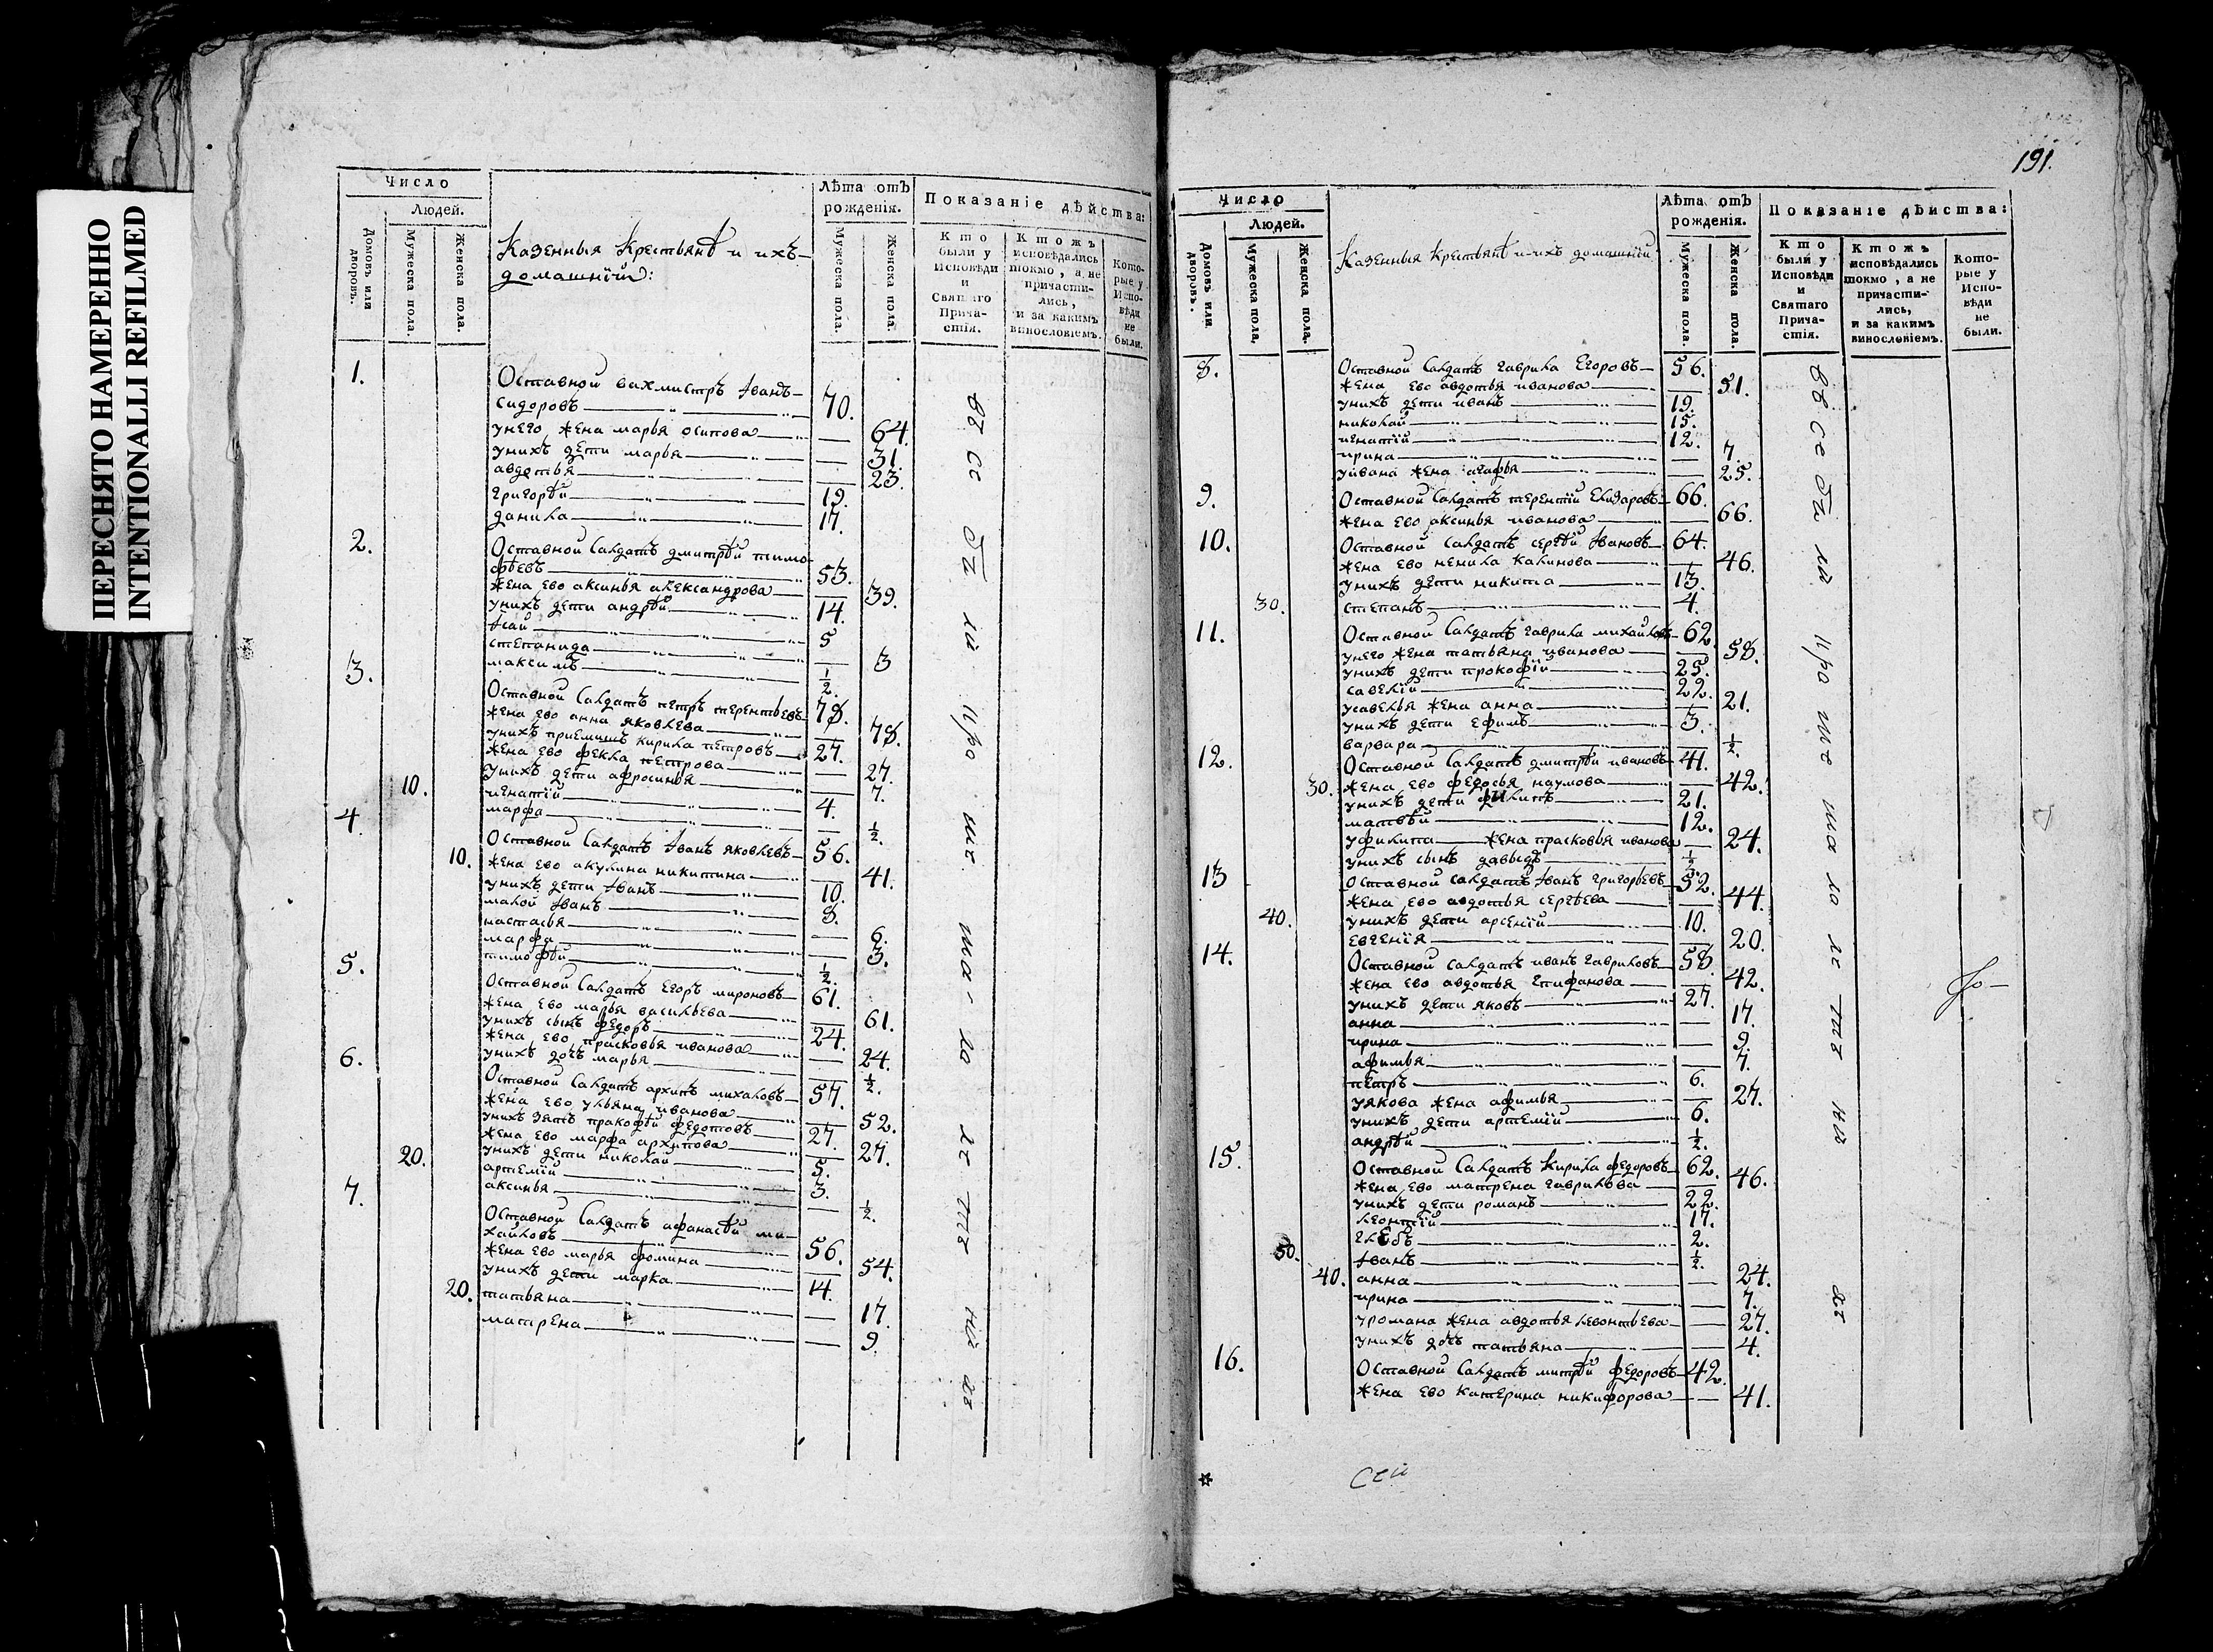 ПЕРЕСНЯТО НАМЕРЕННО
INTENTIONALLI REFILMED
Число
Людей.
Домовъ или дворовъ.
Мужеска пола.
Женска пола.
Казенныя крестьянѣ и ихъ
домашнїи:
Лѣта отъ рожденія.
Мужеска пола.
Женска пола.
Показаніе дѣйства:
Кто были у Исповѣди и Святаго Прича-стія.
Ктожъ исповѣдались токмо, а не причасти-лись, и за какимъ винословіемъ.
Кото-рые у Испо-вѣди не были.
1.
Оставной вахмистръ Иванъ
сидоровъ 70.
унего жена марья осипова — 64.
унихъ дети марья — 31.
авдотья — 23.
григорѣй 19.
данила 17.
2.
Оставной салдатъ дмитрѣй тимо
фѣевъ 53.
жена ево аксинья александрова — 39.
унихъ дети андрѣй 14.
Исай 5
степанида — 3
максимъ 1/2.
3.
Оставной салдатъ петръ терентьевъ 78.
жена ево анна яковлева — 78.
унихъ приемышъ кирила петровъ 27.
жена ево фекла петрова — 27.
унихъ дети афросинья — 7.
10. игнатїй 4.
марфа — 1/2.
4.
Оставной салдатъ Иванъ яковлевъ 56.
10. жена ево акулина никитина — 41.
унихъ дети Иванъ 10.
малой Иванъ 8.
настасья — 6.
марфа — 3.
тимофѣй 1/2.
5.
Оставной салдатъ Егоръ мироновъ 61.
жена ево марья васильева — 61.
унихъ сынъ федоръ 24.
жена ево прасковья иванова — 24.
унихъ дочь марья — 1/2.
6.
Оставной салдатъ архипъ михаловъ 57.
жена ево ульяна иванова — 52.
унихъ зять пракофѣй федотовъ 27.
жена ево марфа архипова — 27.
20. унихъ дети николай 5.
артемїй 3.
аксинья — 1/2.
7.
Оставной салдатъ афанасѣй ми
хайловъ 56.
жена ево марья фомина — 54.
унихъ дети марка 14.
20. татьяна — 17.
матрена — 9.
191.
Число
Людей.
Домовъ или дворовъ.
Мужеска пола.
Женска пола.
Казенныя крестьянѣ и ихъ домашнїи
Лѣта отъ рожденія.
Мужеска пола.
Женска пола.
Показаніе дѣиства:
Кто были у Исповѣди и Святаго Прича-стія.
Ктожъ исповѣдались токмо, а не причасти-лись, и за какимъ винословіемъ.
Кото-рые у Испо-вѣди не были.
8.
Оставной салдатъ гаврила Егоровъ 56.
жена ево авдотья иванова — 51.
унихъ дети иванъ 19.
николай 15.
игнатїй 12.
ирина — 7.
уивана жена агафья — 25.
9.
Оставной салдатъ терентїй Елизаровъ 66.
жена ево аксинья иванова — 66.
10.
Оставной салдатъ сергѣй Ивановъ 64.
жена ево ненила калинова — 46.
унихъ дети никита 13.
30. степанъ 4.
11.
Оставной салдатъ гаврила михайловъ 62.
унего жена татьяна иванова — 58.
унихъ дети прокофїй 25.
савелїй 22.
усавелья жена анна — 21.
унихъ дети ефимъ 3.
варвара — 1/2.
12.
Оставной салдатъ дмитрѣй ивановъ 41.
30. жена ево федосья наумова — 42.
унихъ дети филипъ 21.
матвѣй 12.
уфилипа жена прасковья иванова — 24.
унихъ сынъ давыдъ 1/2.
13
Оставной салдатъ Иванъ григорьевъ 52.
жена ево авдотья сергѣева — 44.
40. унихъ дети арсенїй 10.
евгенїя — 20.
14.
Оставной салдатъ иванъ гавриловъ 58.
жена ево авдотья Епифанова — 42.
унихъ дети яковъ 27.
анна — 17.
ирина — 9.
афимья — 7.
петръ 6.
уякова жена афимья — 27.
унихъ дети артемїй 6.
андрѣй 1/2.
15.
Оставной салдатъ кирила федоровъ 62.
жена ево матрена гаврилова — 46.
унихъ дети романъ 22.
леонтїй 17.
глѣбъ 2.
50. Иванъ 1/2.
40. анна — 24.
ирина — 7.
уромана жена авдотья левонтьева — 27.
унихъ дочь татьяна — 4.
16.
Оставной салдатъ митрѣй федоровъ 42.
жена ево катерина никифорова — 41.